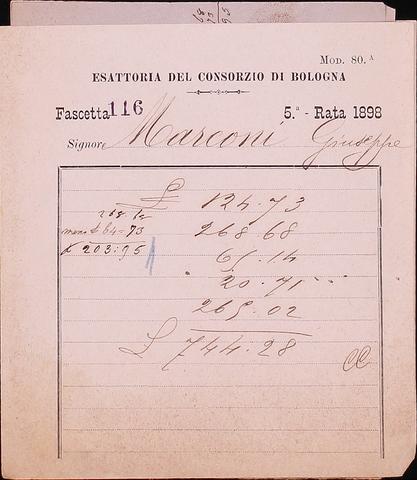 68
73
93
Mod. 80.A
ESATTORIA DEL CONSORZIO DI BOLOGNA
Fascetta 116 5.a - Rata 1898
Signore Marconi Giuseppe
£ 124.73
268.68
meno £ 64=73
£ 203=95
65.14
20.71
265.02
£ 744.28
CC